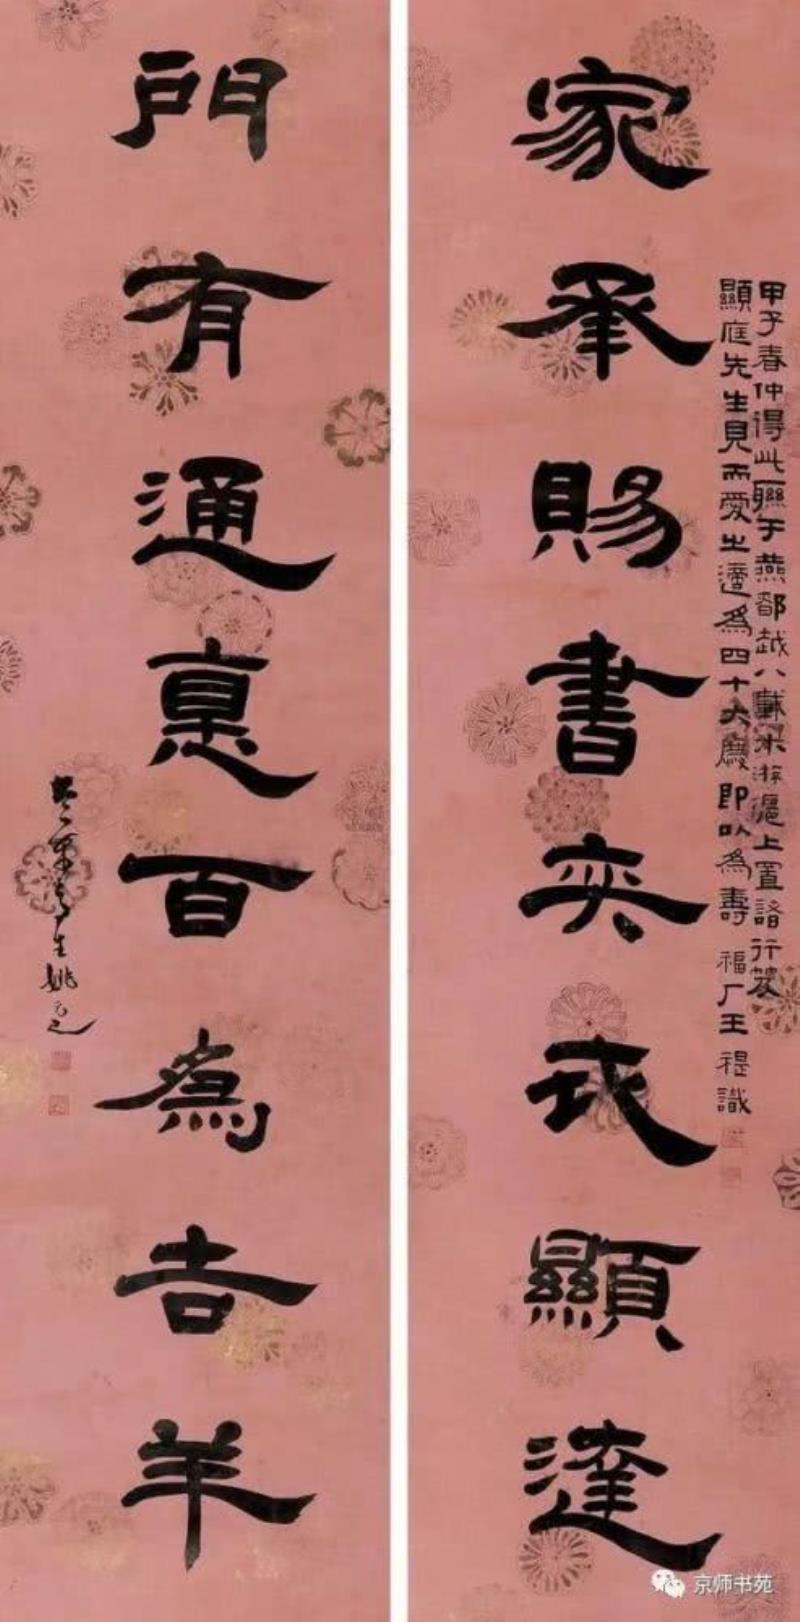 甲子春仲得此聯于燕都越八載來游滬上置諸行篋
顯庭先生見而愛之適為四十大慶即以為壽 福厂王禔識
家承賜書奕代顯達
門有通惪百為吉羊
竹葉亭生姚元之
京师书苑